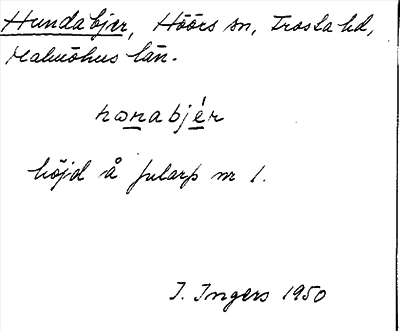 Hundabjer, Höörs sn, Frosta hd,
Malmöhus län.
honabjér
höjd å Jularp nr 1.
I. Ingers 1950